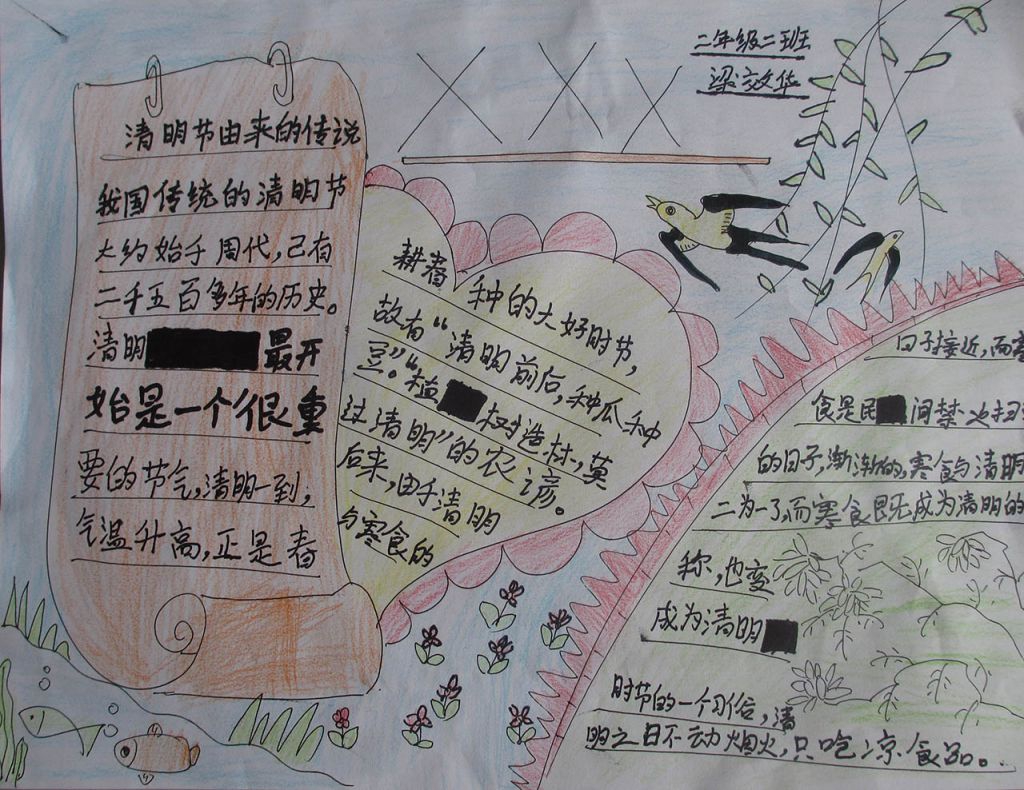 二年级二班
梁效华
XXX
清明节由来的传说
我国传统的清明节
大约始于周代,己有
二千五百多年的历史。
清明 最开
始是一个很重
要的节气,清明一到,
气温升高,正是春
耕春
种的大好时节,
故有“清明前后,种瓜种
豆”。“植 树造林,莫
过清明”的农谚。
后来,由于清明
与寒食的
日子接近,而寒
食是民 间禁火扫
的日子,渐渐的,寒食与清明
二为一了,而寒食既成为清明的
称,也变
成为清明
时节的一个习俗,清
明之日不动烟火,只吃凉食品。